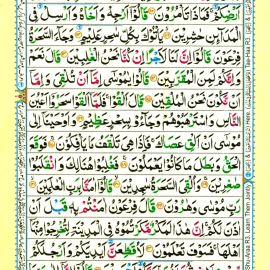 اَرۡضِكُمۡ ۚ فَمَاذَا تَاۡمُرُوۡنَ ۞ قَالُوۡۤا اَرۡجِهۡ وَاَخَاهُ وَاَرۡسِلۡ فِى
الۡمَدَآئِنِ حٰشِرِيۡنَ ۞ يَاۡتُوۡكَ بِكُلِّ سٰحِرٍ عَلِيۡمٍ ۞ وَجَآءَ السَّحَرَةُ
فِرۡعَوۡنَ قَالُوۡۤا اِنَّ لَنَا لَاَجۡرًا اِنۡ كُنَّا نَحۡنُ الۡغٰلِبِيۡنَ ۞ قَالَ نَعَمۡ
وَاِنَّكُمۡ لَمِنَ الۡمُقَرَّبِيۡنَ ۞ قَالُوۡا يٰمُوۡسٰٓى اِمَّاۤ اَنۡ تُلۡقِىَ وَاِمَّاۤ
اَنۡ نَّكُوۡنَ نَحۡنُ الۡمُلۡقِيۡنَ ۞ قَالَ اَلۡقُوۡا ۚ فَلَمَّاۤ اَلۡقَوۡا سَحَرُوۡۤا اَعۡيُنَ
النَّاسِ وَاسۡتَرۡهَبُوۡهُمۡ وَجَآءُوۡ بِسِحۡرٍ عَظِيۡمٍ ۞ وَاَوۡحَيۡنَاۤ اِلٰى
مُوۡسٰٓى اَنۡ اَلۡقِ عَصَاكَ ۚ فَاِذَا هِىَ تَلۡقَفُ مَا يَاۡفِكُوۡنَ ۞ فَوَقَعَ
الۡحَقُّ وَبَطَلَ مَا كَانُوۡا يَعۡمَلُوۡنَ ۞ فَغُلِبُوۡا هُنَالِكَ وَانْقَلَبُوۡا
صٰغِرِيۡنَ ۞ وَاُلۡقِىَ السَّحَرَةُ سٰجِدِيۡنَ ۞ قَالُوۡۤا اٰمَنَّا بِرَبِّ الۡعٰلَمِيۡنَ ۞
رَبِّ مُوۡسٰى وَهٰرُوۡنَ ۞ قَالَ فِرۡعَوۡنُ اٰمَنۡتُمۡ بِهٖ قَبۡلَ اَنۡ
اٰذَنَ لَـكُمۡ ۚ اِنَّ هٰذَا لَمَكۡرٌ مَّكَرۡتُمُوۡهُ فِى الۡمَدِيۡنَةِ لِتُخۡرِجُوۡا مِنۡهَاۤ
اَهۡلَهَا ۚ فَسَوۡفَ تَعۡلَمُوۡنَ ۞ لَاُقَطِّعَنَّ اَيۡدِيَكُمۡ وَاَرۡجُلَكُمۡ